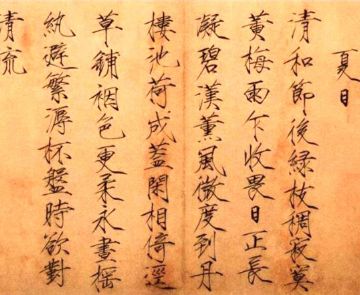 夏日
清和節後綠枝稠寂寞
黃梅雨乍收畏日正長
凝碧漢薰風微度到丹
樓池荷成蓋閑相倚逕
草鋪裀色更柔永晝搖
紈避繁溽杯盤時欲對
清流